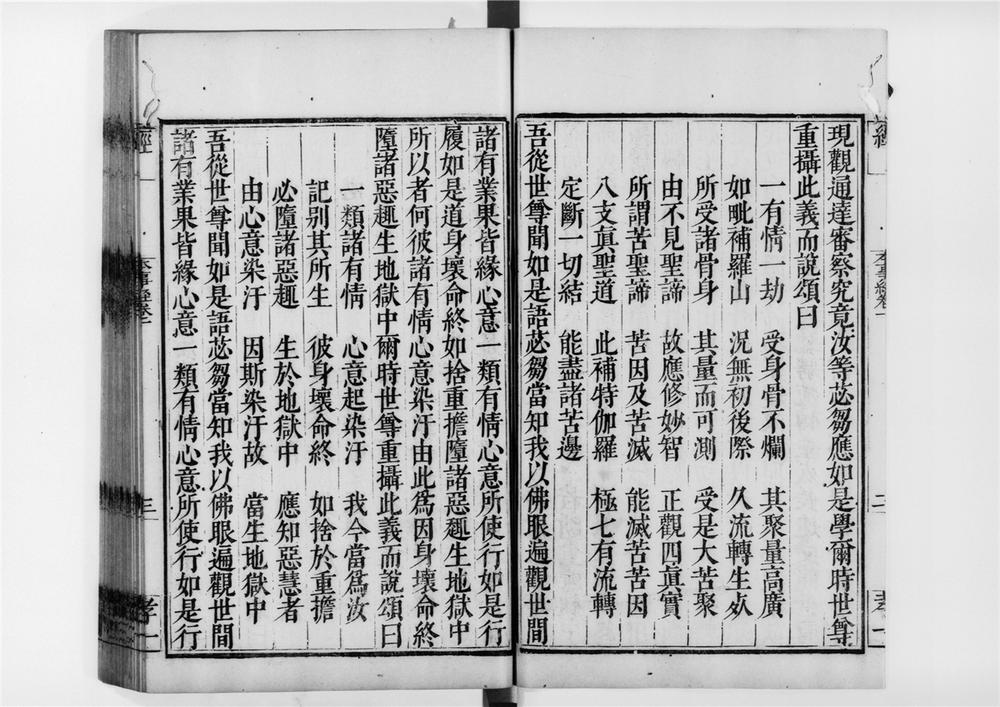 現觀通達審察究竟汝等苾芻應如是學爾時世尊
重攝此義而說頌曰
一有情一劫　受身骨不爛　其聚量高廣
如毗補羅山　況無初後際　久流轉生死
所受諸骨身　其量而可測　受是大苦聚
由不見聖諦　故應修妙智　正觀四眞實
所謂苦聖諦　苦因及苦滅　能滅苦苦因
八支眞聖道　此補特伽羅　極七有流轉
定斷一切結　能盡諸苦邊
吾從世尊聞如是語苾芻當知我以佛眼遍觀世間
諸有業果皆緣心意一類有情心意所使行如是行
履如是道身壞命終如捨重擔墮諸惡趣生地獄中
所以者何彼諸有情心意染汙由此爲因身壞命終
墮諸惡趣生地獄中爾時世尊重攝此義而說頌曰
一類諸有情　心意起染汙　我今當爲汝
記別其所生　彼身壞命終　如捨於重擔
必墮諸惡趣　生於地獄中　應知惡慧者
由心意染汙　因斯染汙故　當生地獄中
吾從世尊聞如是語苾芻當知我以佛眼遍觀世間
諸有業果皆緣心意一類有情心意所使行如是行